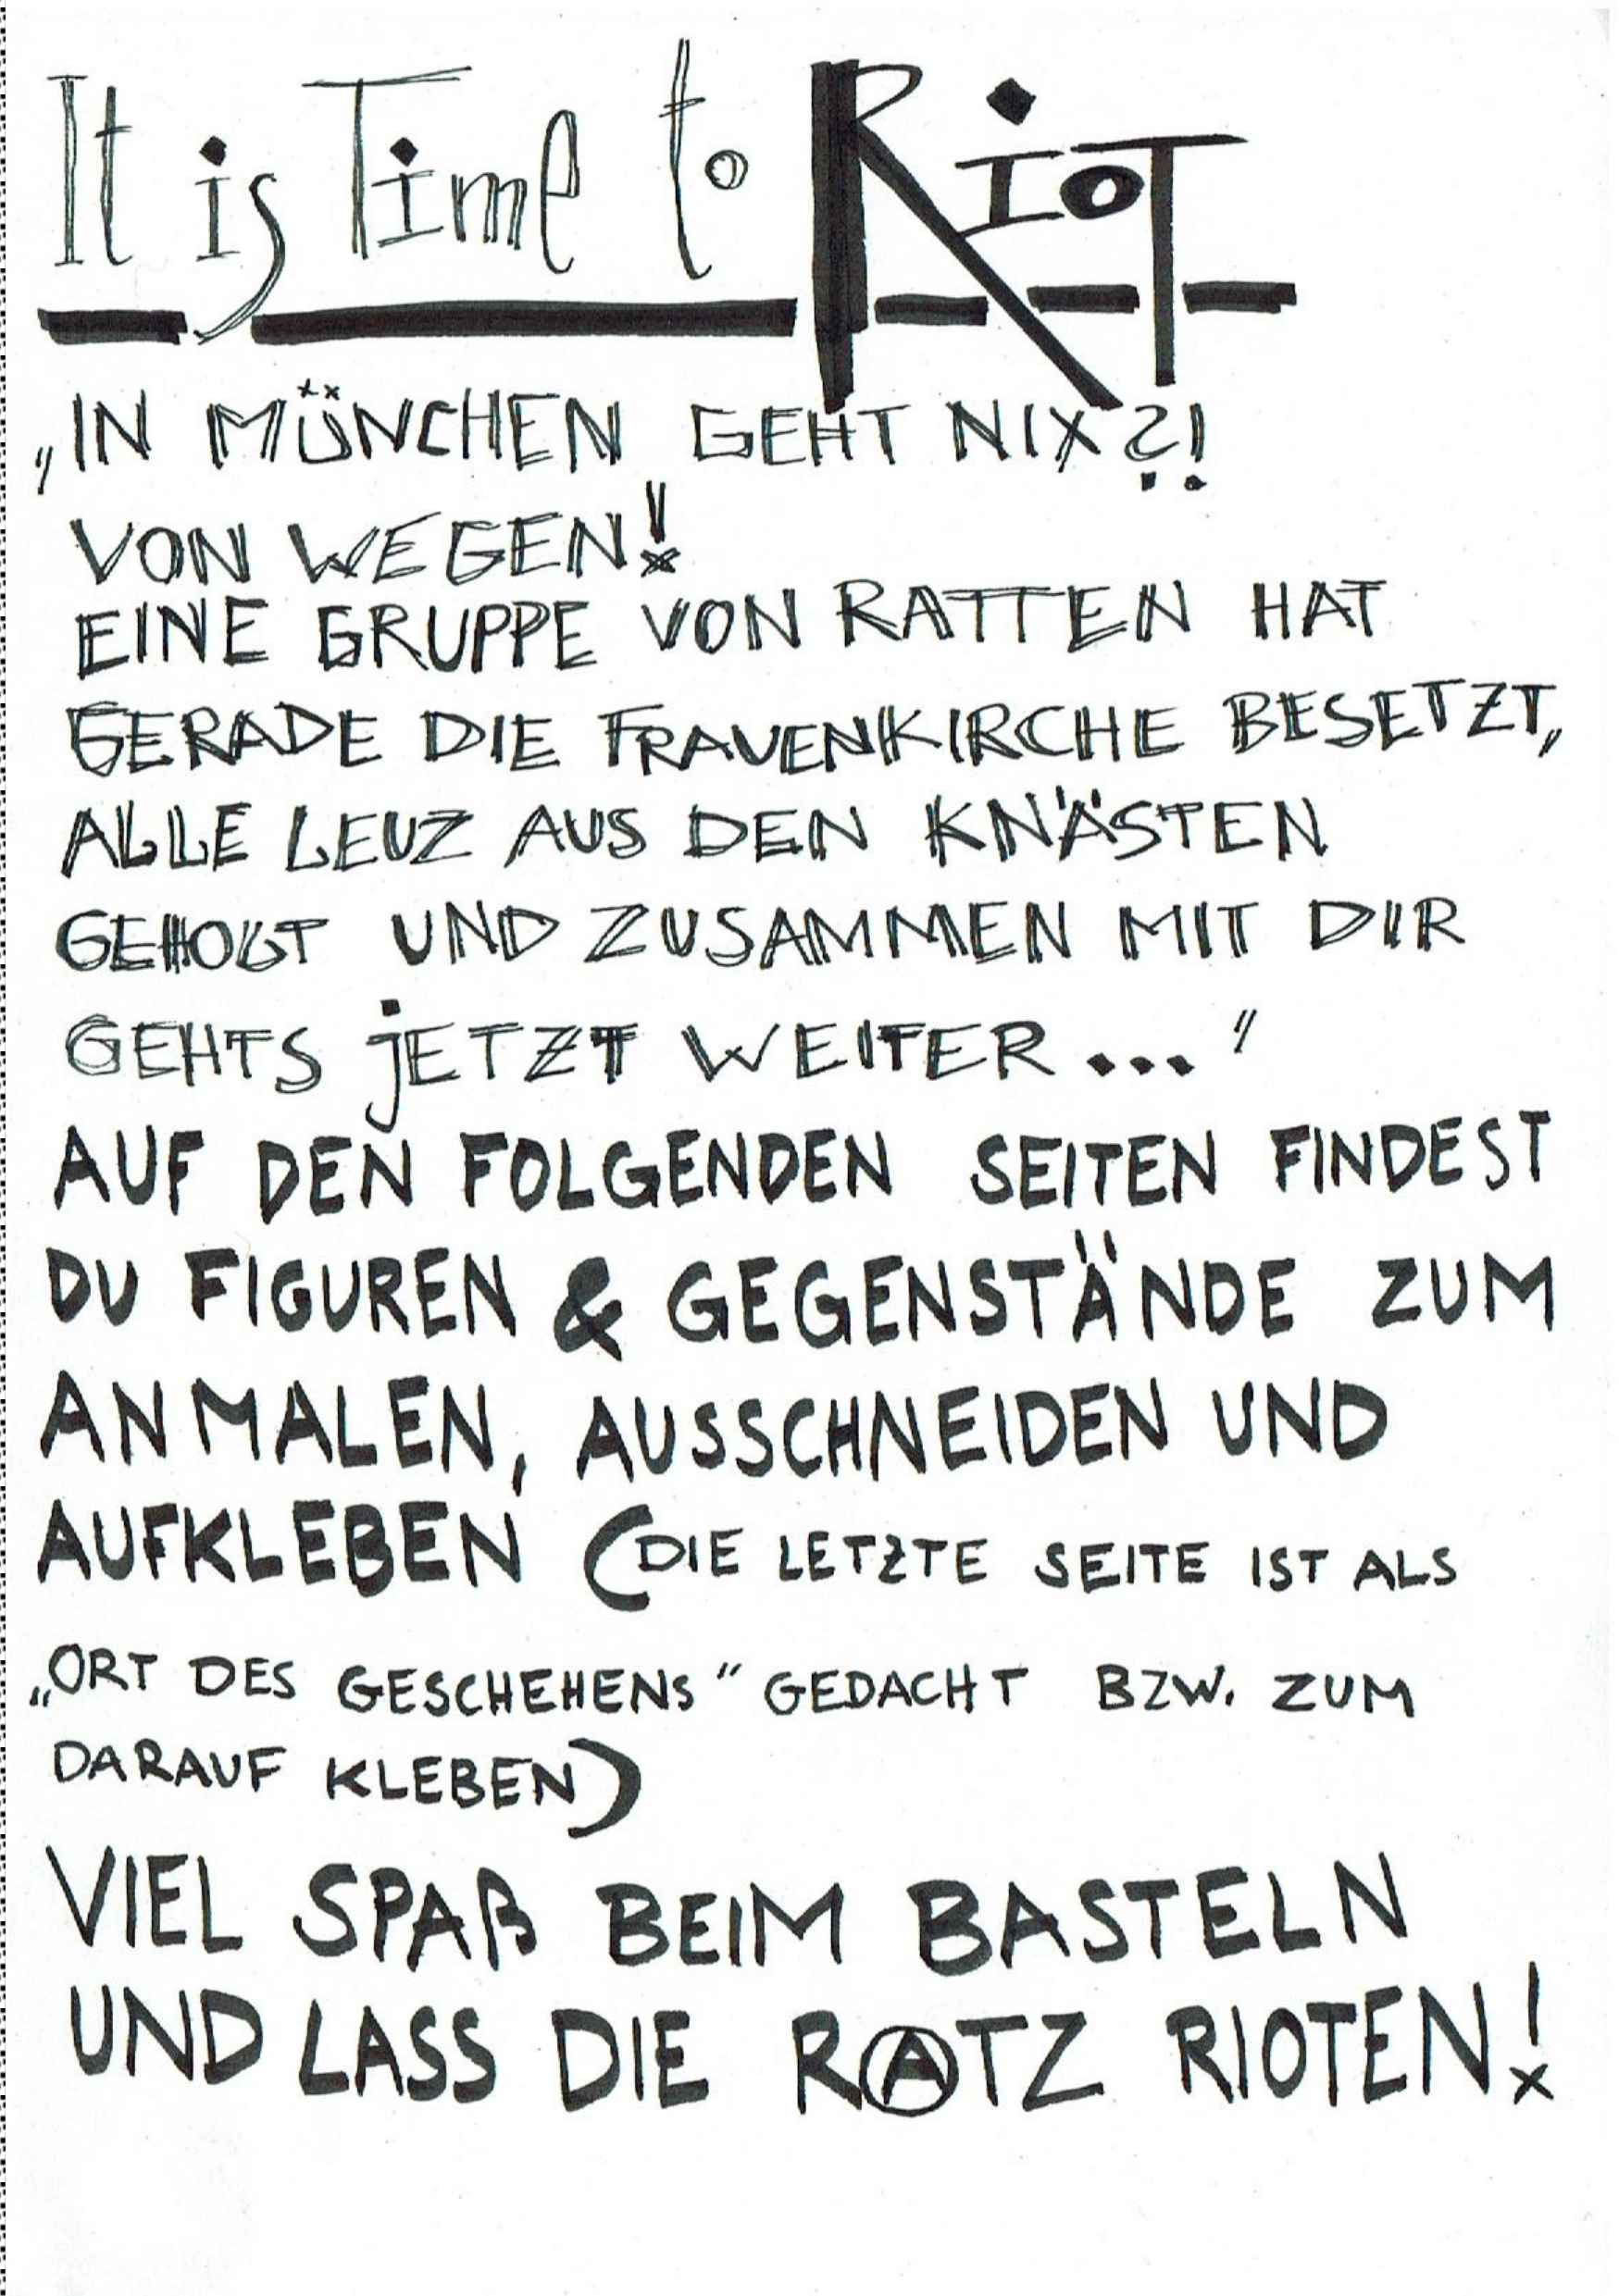 It is Time to RioT
„IN MÜNCHEN GEHT NIX?!
VON WEGEN!
EINE GRUPPE VON RATTEN HAT
GERADE DIE FRAUENKIRCHE BESETZT,
ALLE LEUZ AUS DEN KNÄSTEN
GEHOLT UND ZUSAMMEN MIT DIR
GEHTS jETZT WEITER..."
AUF DEN FOLGENDEN SEITEN FINDEST
DU FIGUREN & GEGENSTÄNDE ZUM
ANMALEN, AUSSCHNEIDEN UND
AUFKLEBEN (DIE LETZTE SEITE IST ALS
„ORT DES GESCHEHENS" GEDACHT BZW. ZUM
DARAUF KLEBEN)
VIEL SPAß BEIM BASTELN
UND LASS DIE RⒶTZ RIOTEN!